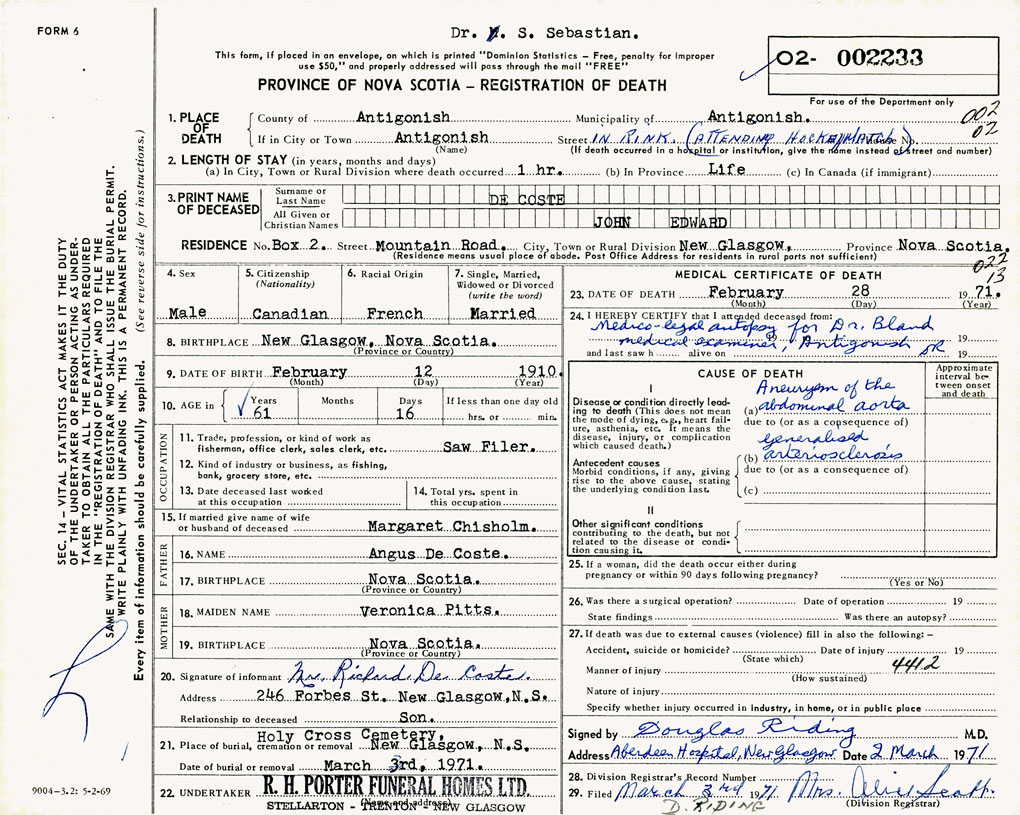 FORM 6
Dr. S. Sebastian.
This form, if placed in an envelope, on which is printed "Dominion Statistics – Free, penalty for improper
use $50," and properly addressed will pass through the mail "FREE"
PROVINCE OF NOVA SCOTIA – REGISTRATION OF DEATH
02- 002233
For use of the Department only
002
02
1. PLACE OF DEATH
County of Antigonish Municipality of Antigonish.
If in City or Town Antigonish Street IN RINK. (ATTENDING HOCKEY MATCH) House No.
(Name) (If death occurred in a hospital or institution, give the name instead of street and number)
2. LENGTH OF STAY (in years, months and days)
(a) In City, Town or Rural Division where death occurred 1 hr. (b) In Province Life (c) In Canada (if immigrant)
3. PRINT NAME OF DECEASED
Surname or Last Name DE COSTE
All Given or Christian Names JOHN EDWARD
RESIDENCE No. Box 2. Street Mountain Road. City, Town or Rural Division New Glasgow, Province Nova Scotia.
(Residence means usual place of abode. Post Office Address for residents in rural parts not sufficient)
022
13
4. Sex
Male
5. Citizenship
(Nationality)
Canadian
6. Racial Origin
French
7. Single, Married,
Widowed or Divorced
(write the word)
Married
8. BIRTHPLACE New Glasgow, Nova Scotia.
(Province or Country)
9. DATE OF BIRTH February 12 1910.
(Month) (Day) (Year)
10. AGE in Years Months Days If less than one day old
61 16 hrs. or min.
OCCUPATION
11. Trade, profession, or kind of work as
fisherman, office clerk, sales clerk, etc. Saw Filer.
12. Kind of industry or business, as fishing,
bank, grocery store, etc.
13. Date deceased last worked
at this occupation
14. Total yrs. spent in
this occupation
15. If married give name of wife
or husband of deceased Margaret Chisholm.
FATHER
16. NAME Angus De Coste.
17. BIRTHPLACE Nova Scotia.
(Province or Country)
MOTHER
18. MAIDEN NAME Veronica Pitts.
19. BIRTHPLACE Nova Scotia.
(Province or Country)
20. Signature of informant Mr. Richard De Coste.
Address 246 Forbes St. New Glasgow, N.S.
Relationship to deceased Son.
Holy Cross Cemetery,
21. Place of burial, cremation or removal New Glasgow, N.S.
Date of burial or removal March 3rd, 1971.
22. UNDERTAKER R. H. PORTER FUNERAL HOMES LTD.
(Name and address)
STELLARTON - TRENTON - NEW GLASGOW
MEDICAL CERTIFICATE OF DEATH
23. DATE OF DEATH February 28 1971.
(Month) (Day) (Year)
24. I HEREBY CERTIFY that I attended deceased from:
Medico-legal autopsy for Dr. Bland 19
medical examiner, Antigonish
and last saw h alive on 19
CAUSE OF DEATH
Approximate interval between onset and death
I
Disease or condition directly leading to death (This does not mean the mode of dying, e.g., heart failure, asthenia, etc. It means the disease, injury, or complication which caused death.)
Aneurysm of the
(a) abdominal aorta
due to (or as a consequence of)
Generalised
(b) arteriosclerosis
due to (or as a consequence of)
(c)
Antecedent causes
Morbid conditions, if any, giving
rise to the above cause, stating
the underlying condition last.
II
Other significant conditions
contributing to the death, but not
related to the disease or condition causing it.
25. If a woman, did the death occur either during
pregnancy or within 90 days following pregnancy?
(Yes or No)
26. Was there a surgical operation? Date of operation 19
State findings Was there an autopsy?
27. If death was due to external causes (violence) fill in also the following: –
Accident, suicide or homicide? Date of injury 19
(State which)
Manner of injury 4412
(How sustained)
Nature of injury
Specify whether injury occurred in industry, in home, or in public place
Signed by Douglas Riding M.D.
Address Aberdeen Hospital, New Glasgow Date 2 March 1971
28. Division Registrar's Record Number
29. Filed March 3rd 1971 Mrs.
(Division Registrar)
D. RIDING
SEC. 14 – VITAL STATISTICS ACT MAKES IT THE DUTY
OF THE UNDERTAKER OR PERSON ACTING AS UNDER-
TAKER TO OBTAIN ALL THE PARTICULARS REQUIRED
IN THE "REGISTRATION OF DEATH" AND TO FILE THE
SAME WITH THE DIVISION REGISTRAR WHO SHALL ISSUE THE BURIAL PERMIT.
WRITE PLAINLY WITH UNFADING INK. THIS IS A PERMANENT RECORD.
Every item of information should be carefully supplied. (See reverse side for instructions.)
9004-3.2: 5-2-69